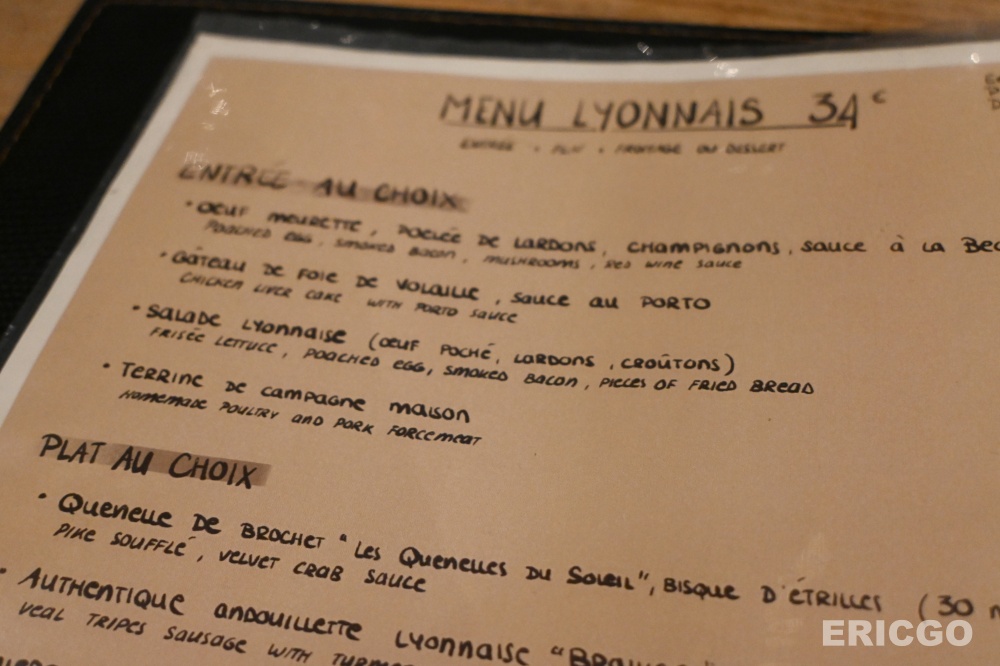 MENU LYONNAIS 34€
ENTRÉE + PLAT + FROMAGE OU DESSERT
ENTRÉE AU CHOIX
• OEUF MEURETTE, POELÉE DE LARDONS, CHAMPIGNONS, SAUCE À LA
POACHED EGG, SMOKED BACON, MUSHROOMS, RED WINE SAUCE
• GÂTEAU DE FOIE DE VOLAILLE, SAUCE AU PORTO
CHICKEN LIVER CAKE WITH PORTO SAUCE
• SALADE LYONNAISE (OEUF POCHÉ, LARDONS, CROÛTONS)
FRISÉE LETTUCE, POACHED EGG, SMOKED BACON, PIECES OF FRIED BREAD
• TERRINE DE CAMPAGNE MAISON
HOMEMADE POULTRY AND PORK FORCEMEAT
PLAT AU CHOIX
• QUENELLE DE BROCHET "LES QUENELLES DU SOLEIL", BISQUE D'ÉTRILLES (30
PIKE SOUFFLÉ, VELVET CRAB SAUCE
• AUTHENTIQUE ANDOUILLETTE LYONNAISE
VEAL TRIPES SAUSAGE WITH
ERICGO